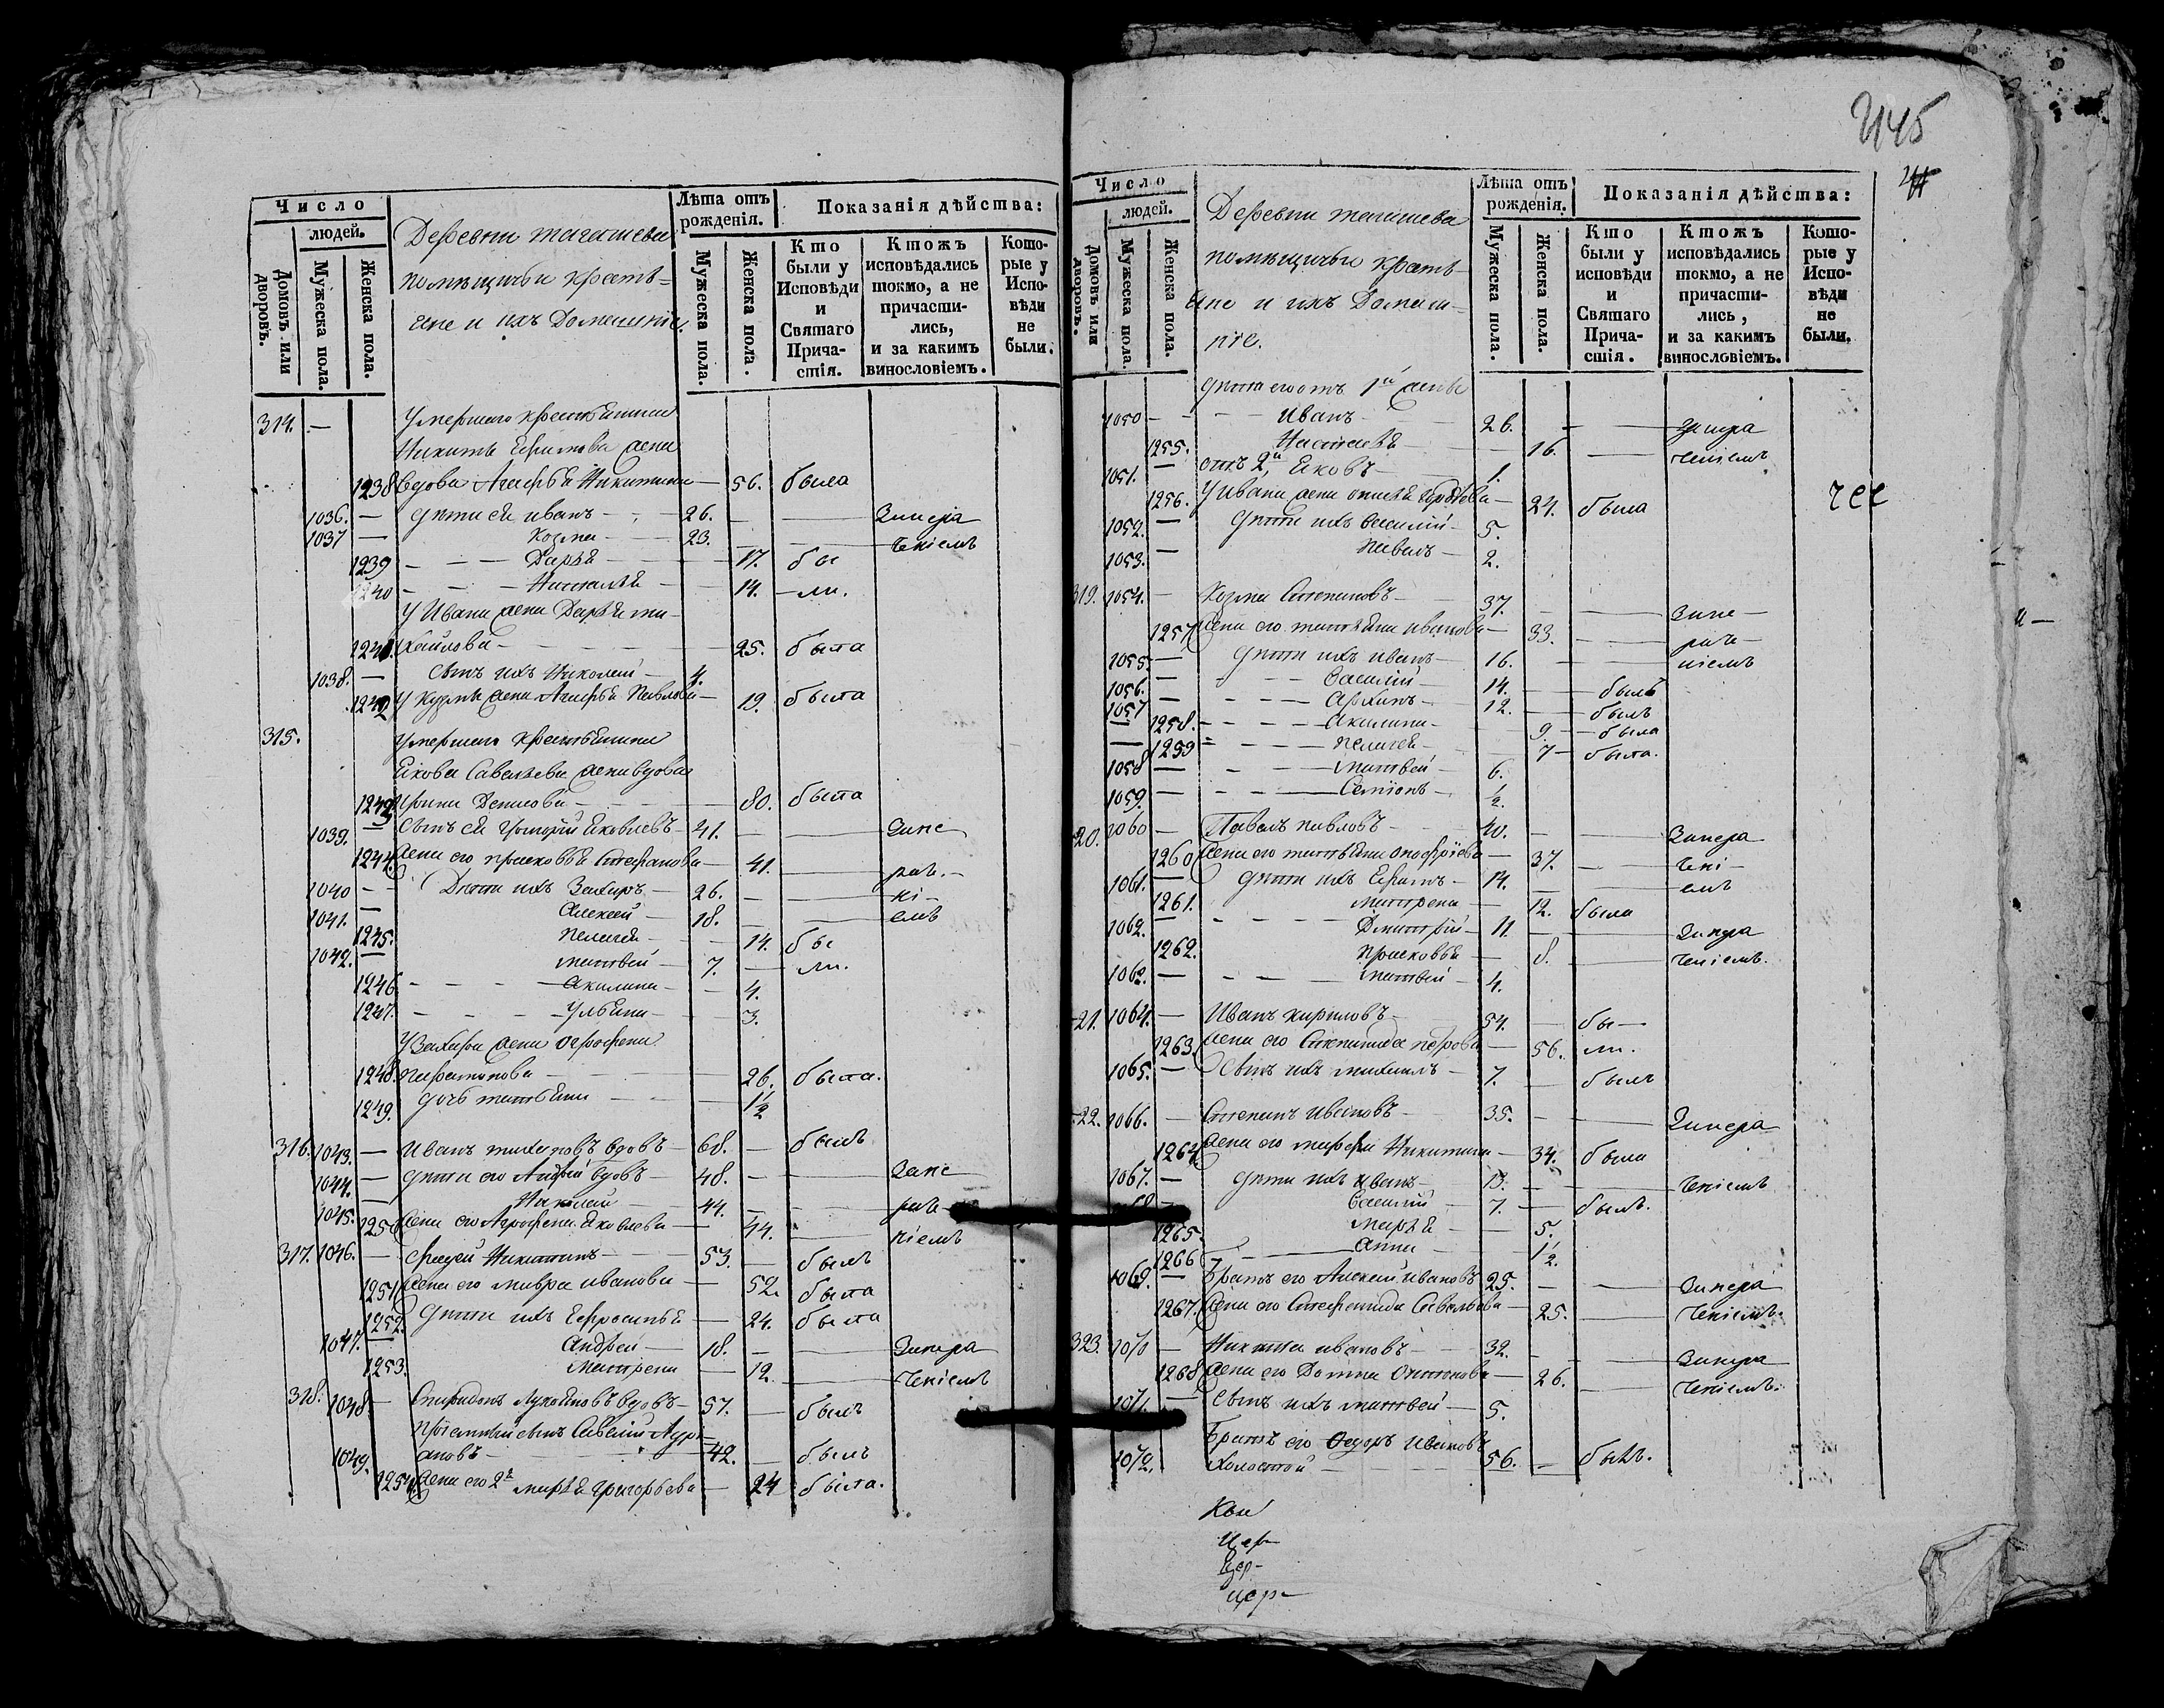 Число
людей.
Домовъ или дворовъ.
Мужеска пола.
Женска пола.
Деревни
помѣщичьи крестья=
не и ихъ Домашніе.
Лѣта отъ рожденія.
Мужеска пола.
Женска пола.
Показанія дѣйства:
Кто были у Исповѣди и Святаго Причастія.
Ктожъ исповѣдались токмо, а не причастились, и за какимъ винословіемъ.
Которые у Исповѣди не были.
314. — Умершаго крестьянина
Никиты Ефимова жена
1238 вдова Агафья Никитина — 56. была
1036. — дѣти ея Иванъ — 26. — — Занера
1037 — Козма — 23. — — ченіемъ
1239 — — — Дарья — 17. бы
1240 — — — Наталья — 14. — ли.
У Ивана жена Дарья Ми-
1241. хайлова — 25. была
1038. — Сынъ ихъ Николай — 4.
1242 У Кузмы жена Агафья Павлова — 19. была
315. Умершаго крестьянина
Якова Савельева жена вдова
1243 Ирина Денисова — 80. была
1039. — Сынъ ея Григорій Яковлевъ — 41. — — Зане
1244. Жена его Прасковья Стефанова — 41. — раче. —
1040 — — Дѣти ихъ Захаръ — 26. — — ні —
1041. — Алексѣй — 18. — — емъ
1245. Пелагея — 14. бы
1042. — Матвей — 7. — ли.
1246 — — — Акилина — 4.
1247. — — — Ульяна — 3.
У Захара жена Агрофена
1248. Парамонова — 26. была.
1249. дочь Татьяна — 1 1/2
316. 1043. — Иванъ вдовъ — 68. — былъ
1044. — дѣти его Андрей вдовъ — 48. — — Зане
1045. — Николай — 44. — — раче
1250 Жена его Агрофена Яковлева — 44. — ніемъ
317. 1046. — Никитинъ — 53. — былъ
1251 Жена его Мавра Иванова — 52. была
1252. дѣти ихъ Ефросинья — 24. была
1047. — Андрей — 18. — — Занера
1253. Матрена — 12. — ченіемъ
318. 1048. — Спиридонъ Лукояновъ вдовъ — 57. — былъ
Пріемный сынъ Савелій
1049. ановъ — 42. — былъ
1254 Жена его 2я Марья Григорьева — 24 была.
445
Число
людей.
Домовъ или дворовъ.
Мужеска пола.
Женска пола.
Деревни
помѣщичьи кресть-
яне и ихъ Домаш-
ніе.
Лѣта отъ рожденія.
Мужеска пола.
Женска пола.
Показанія дѣйства:
Кто были у исповѣди и Святаго Причастія.
Ктожъ исповѣдались токмо, а не причастились, и за какимъ винословіемъ.
Которые у Исповѣди не были.
дѣти его отъ 1й жены
1050 — — — Иванъ — 26. — — Занера
1255. Наталья — 16. — ченіемъ
1051. — отъ 2й, Яковъ — 1.
1256. У Ивана жена — 24. была
1052. — дѣти ихъ Василій — 5.
1053. — Павелъ — 2.
319. 1054. — Козма Степановъ — 37. — — Зане —
1257 Жена его Татьяна Иванова — 33. — раче —
1055. — дѣти ихъ Иванъ — 16. — — ніемъ
1056. — — — Василій — 14. — былъ
1057 — — — Архипъ — 12. — былъ
— 1258. — — — Акилина — 9. — была
— 1259 — — — Пелагея — 7 — была.
1058 — — — Матвей — 6.
1059. — — — Семіонъ — 1/2.
20. 1060 — Павелъ Павловъ — 40. — — Занера
1260 Жена его Татьяна Онофріева — 37. — чені —
1061. — дѣти ихъ Ефимъ — 14. — — емъ
1261. Матрена — 12. была
1062. — — — Дмитрій — 11. — — Занера
1262. Прасковья — 8. — ченіемъ.
1062. — — — Матвей — 4.
21. 1064. — Иванъ Кириловъ — 54. — бы —
1263. Жена его Степанида Петрова — 56. ли.
1065. — Сынъ ихъ Михаилъ — 7. — былъ
22. 1066. — Степанъ Ивановъ — 35. — — Занера
1264. Жена его Марфа Никитина — 34. была
1067. — дѣти ихъ Иванъ — 13. — — ченіемъ
Василій — 7. — былъ.
1265. Марья — 5.
1266 — Анна — 1 1/2.
1069. — Братъ его Алексѣй Ивановъ 25. — — Занера
1267. Жена его Степанида Савельева — 25. — ченіемъ.
323. 1070 — Никита Ивановъ — 32. — — Занера
1268 Жена его Домна — 26. — ченіемъ.
1071. — Сынъ ихъ Матвей — 5.
Братъ его Ѳедоръ Ивановъ
1072. холостой — 56. — былъ.
Цер-
Цер-
цер-